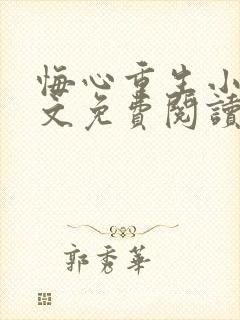 悔心重生小
文免費閱讀
郭秀華